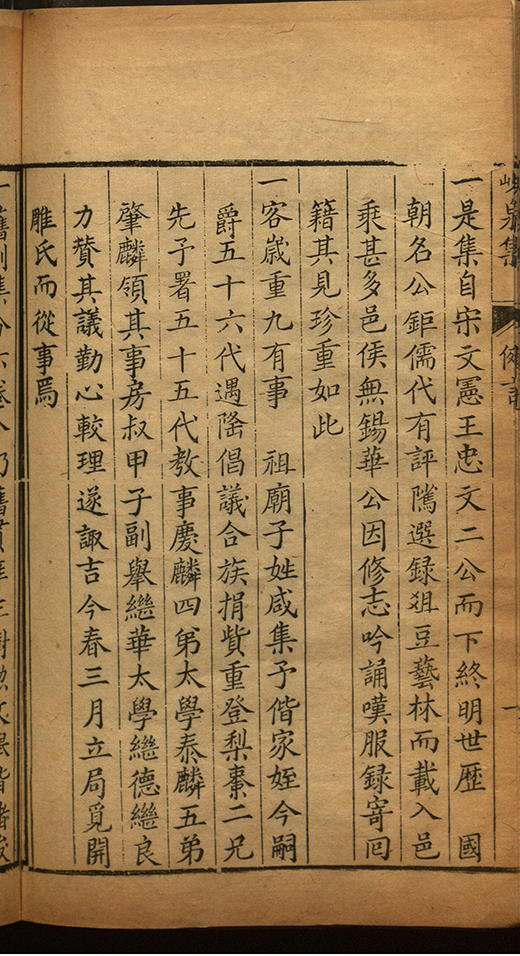 峴泉集
例言
一
一是集自宋文憲王忠文二公而下終明世歷　國
朝名公鉅儒代有評隲選録俎豆藝林而載入邑
乘甚多邑侯無錫華公因修志吟誦嘆服録寄囘
籍其見珍重如此
一客歲重九有事　祖廟子姓咸集予偕家姪今嗣
爵五十六代遇隆倡議合族捐貲重登梨棗二兄
先予署五十五代教事慶麟四弟太學泰麟五弟
肇麟領其事房叔甲子副舉繼華太學繼德繼良
力贊其議勤心較理遂諏吉今春三月立局覓開
雕氏而從事焉
一舊刻集分六卷今仍舊貫